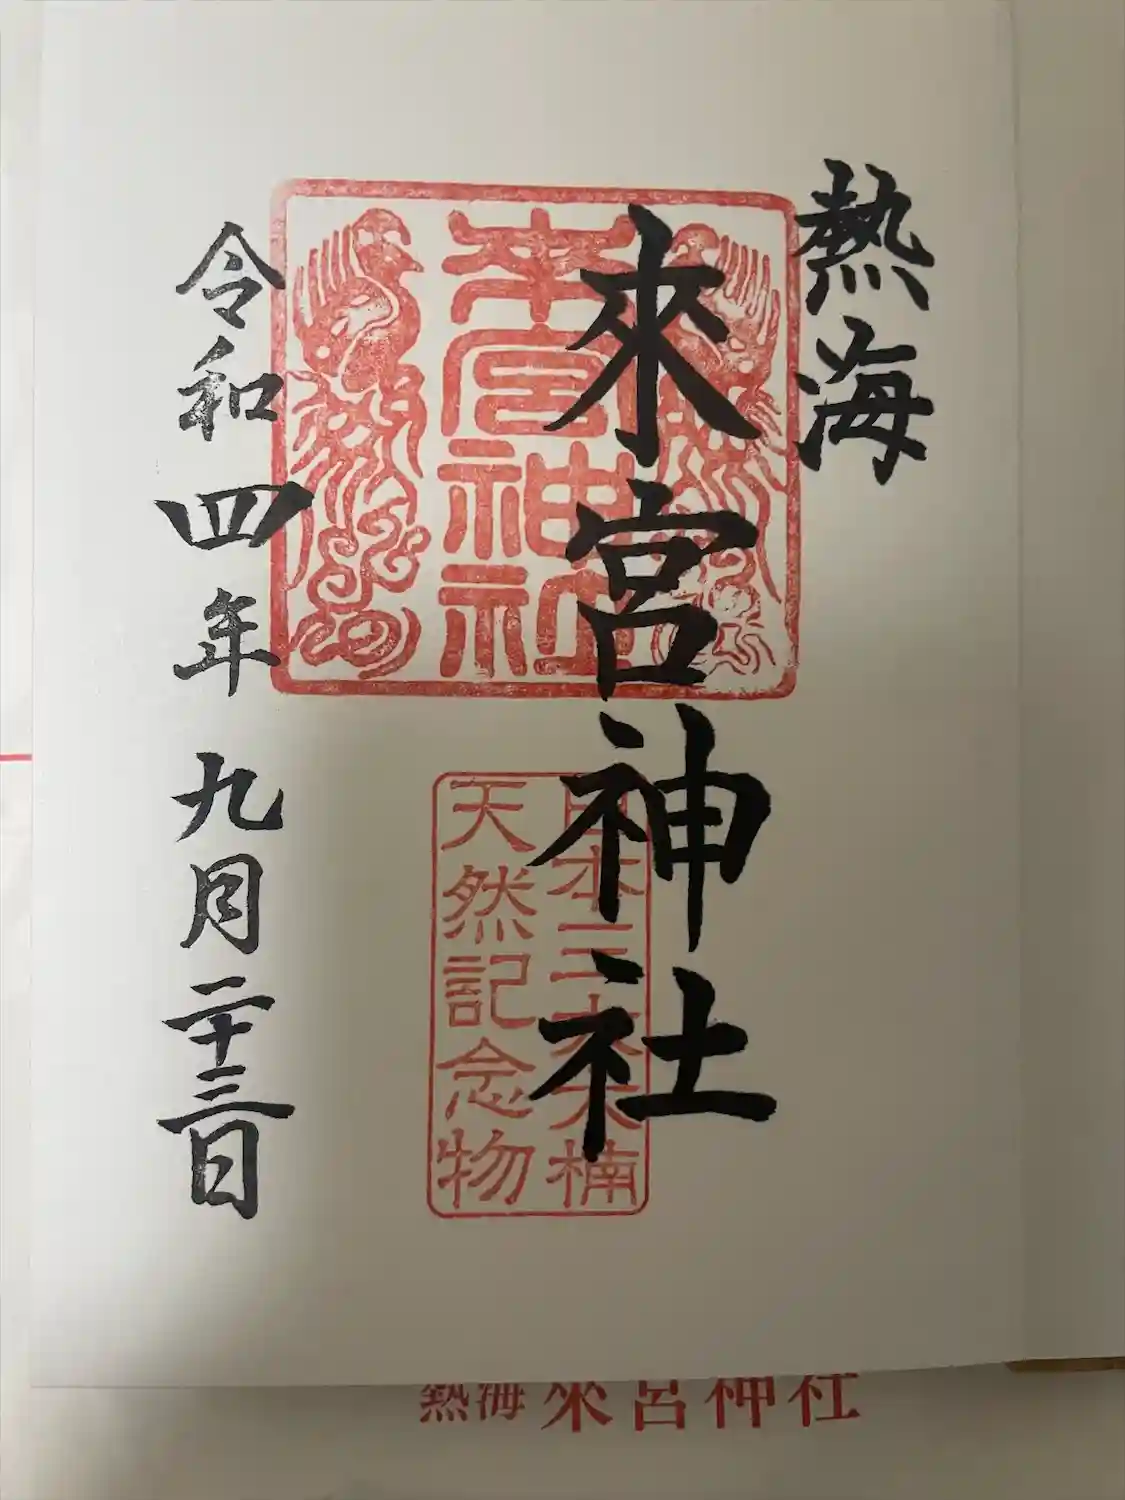 熱海
來宮神社
來宮神社
日本三大大楠
天然記念物
令和四年九月二十三日
熱海 來宮神社